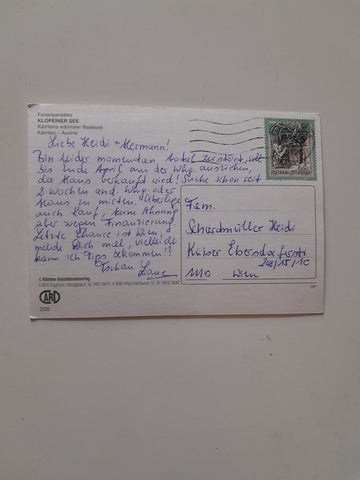 Ferienparadies
KLOPEINER SEE
Kärntens wärmster Badesee
Kärnten - Austria
Liebe Heidi + Hermann!
Bin leider momentan total zerstört, soll
bis Ende April aus der Whg. ausziehen,
da Haus verkauft wird! Suche schon seit
2 Wochen and. Whg. oder
Haus zu mieten. Überlege
auch Kauf, kein Ahnung
aber wegen Finanzierung
letzte Chance ist Wien,
melde Dich mal, vielleicht
kann ich Tips bekommen!?
Fam.
Heidi
Kaiser Ebersdorferstr.
1110 Wien
© Kärntner Ansichtskartenverlag
CARD
2036